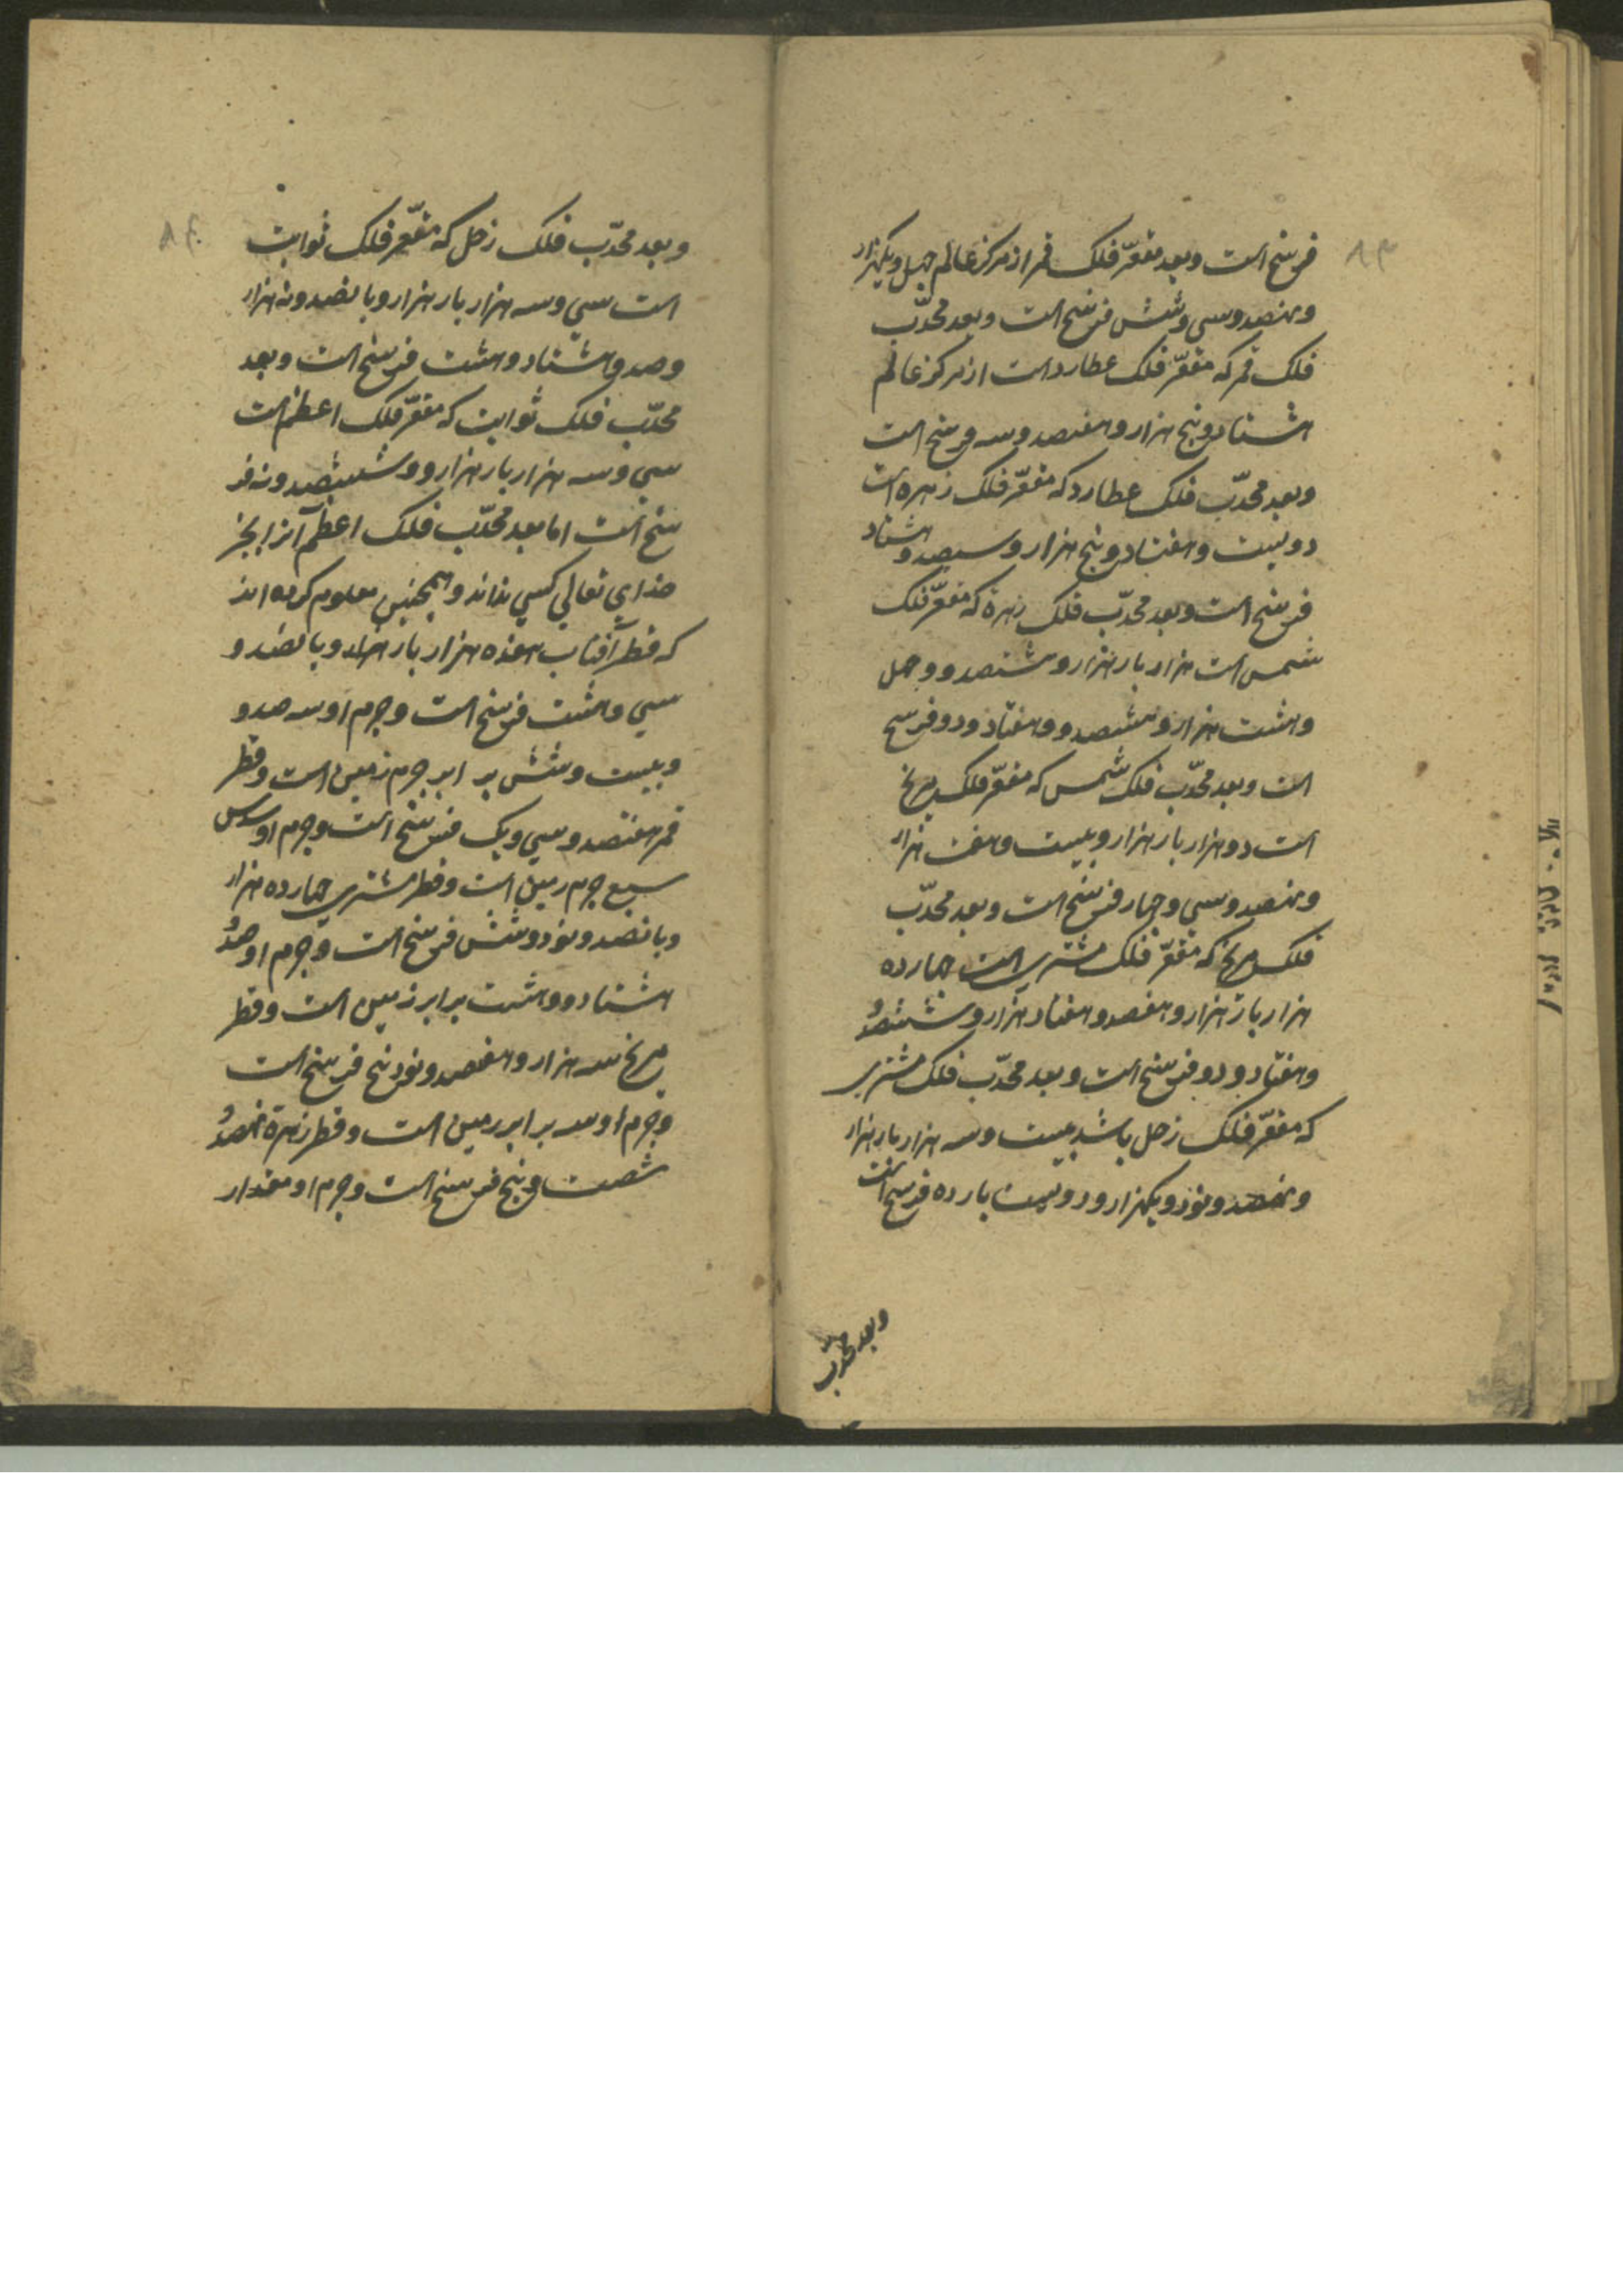 ۸۳
فرسنخ است و بعد مقعّر فلک قمر از مرکز عالم چهل و یکهزار
و نهصد و سی و شش فرسنخ است و بعد محدّب
فلک قمر که مقعّر فلک عطارد است از مرکز عالم
هشتاد و پنج هزار و هفتصد و سه فرسنخ است
و بعد محدّب فلک عطارد که مقعّر فلک زهره است
دویست و هفتاد و پنج هزار و سیصد و هشتاد
فرسنخ است و بعد محدّب فلک زهرة که مقعّر فلک
شمس است هزار بار هزار و ششصد و چهل
و هشت هزار و هشتصد و هفتاد و دو فرسخ
است و بعد محدّب فلک شمس که مقعّر فلک مریخ
است دو هزار بار هزار و بیست و هفت هزار
و نهصد و سی و چهار فرسنخ است و بعد محدّب
فلک مریخ که مقعّر فلک مشتری است چهارده
هزار بار هزار و هفصد و هفتاد هزار و ششصد و
و هفتاد و دو فرسنخ است و بعد محدّب فلک مشتری
که مقعّر فلک زحل باشد بیست و سه هزار بار هزار
و نهصد و نود و یکهزار و دویست یازده فرسخ است
و بعد محدّب
۸۴
و بعد محدّب فلک زحل که مقعّر فلک ثوابت
است سی و سه هزار بار هزار و پانصد و نه هزار
و صد و هشتاد و هشت فرسنخ است و بعد
محدّب فلک ثوابت که مقعّر فلک اعظم است
سی و سه هزار بار هزار و ششصد و نه فر
سنخ است اما بعد محدّب فلک اعظم آنرا بجز
خدای تعالی کسی نداند و همچنین معلوم کرده اند
که قطر آفتاب هفده هزار بار هزار و پانصد و
سی و هشت فرسنخ است و جرم او سه صد و
و بیست و شش برابر جرم زمین است و قطر
قمر هفتصد و سی و یک فرسنخ است و جرم او سدس
سبع جرم زمین است و قطر مشتری چهارده هزار
و پانصد و نود و شش فرسنخ است و جرم او صد و
هشتاد و هشت برابر زمین است و قطر
مریخ سه هزار و هفصد و نود پنج فرسنخ است
و جرم او سه برابر زمین است و قطر زهرة نهصد و
شصت و پنج فرسنخ است و جرم او مقدار